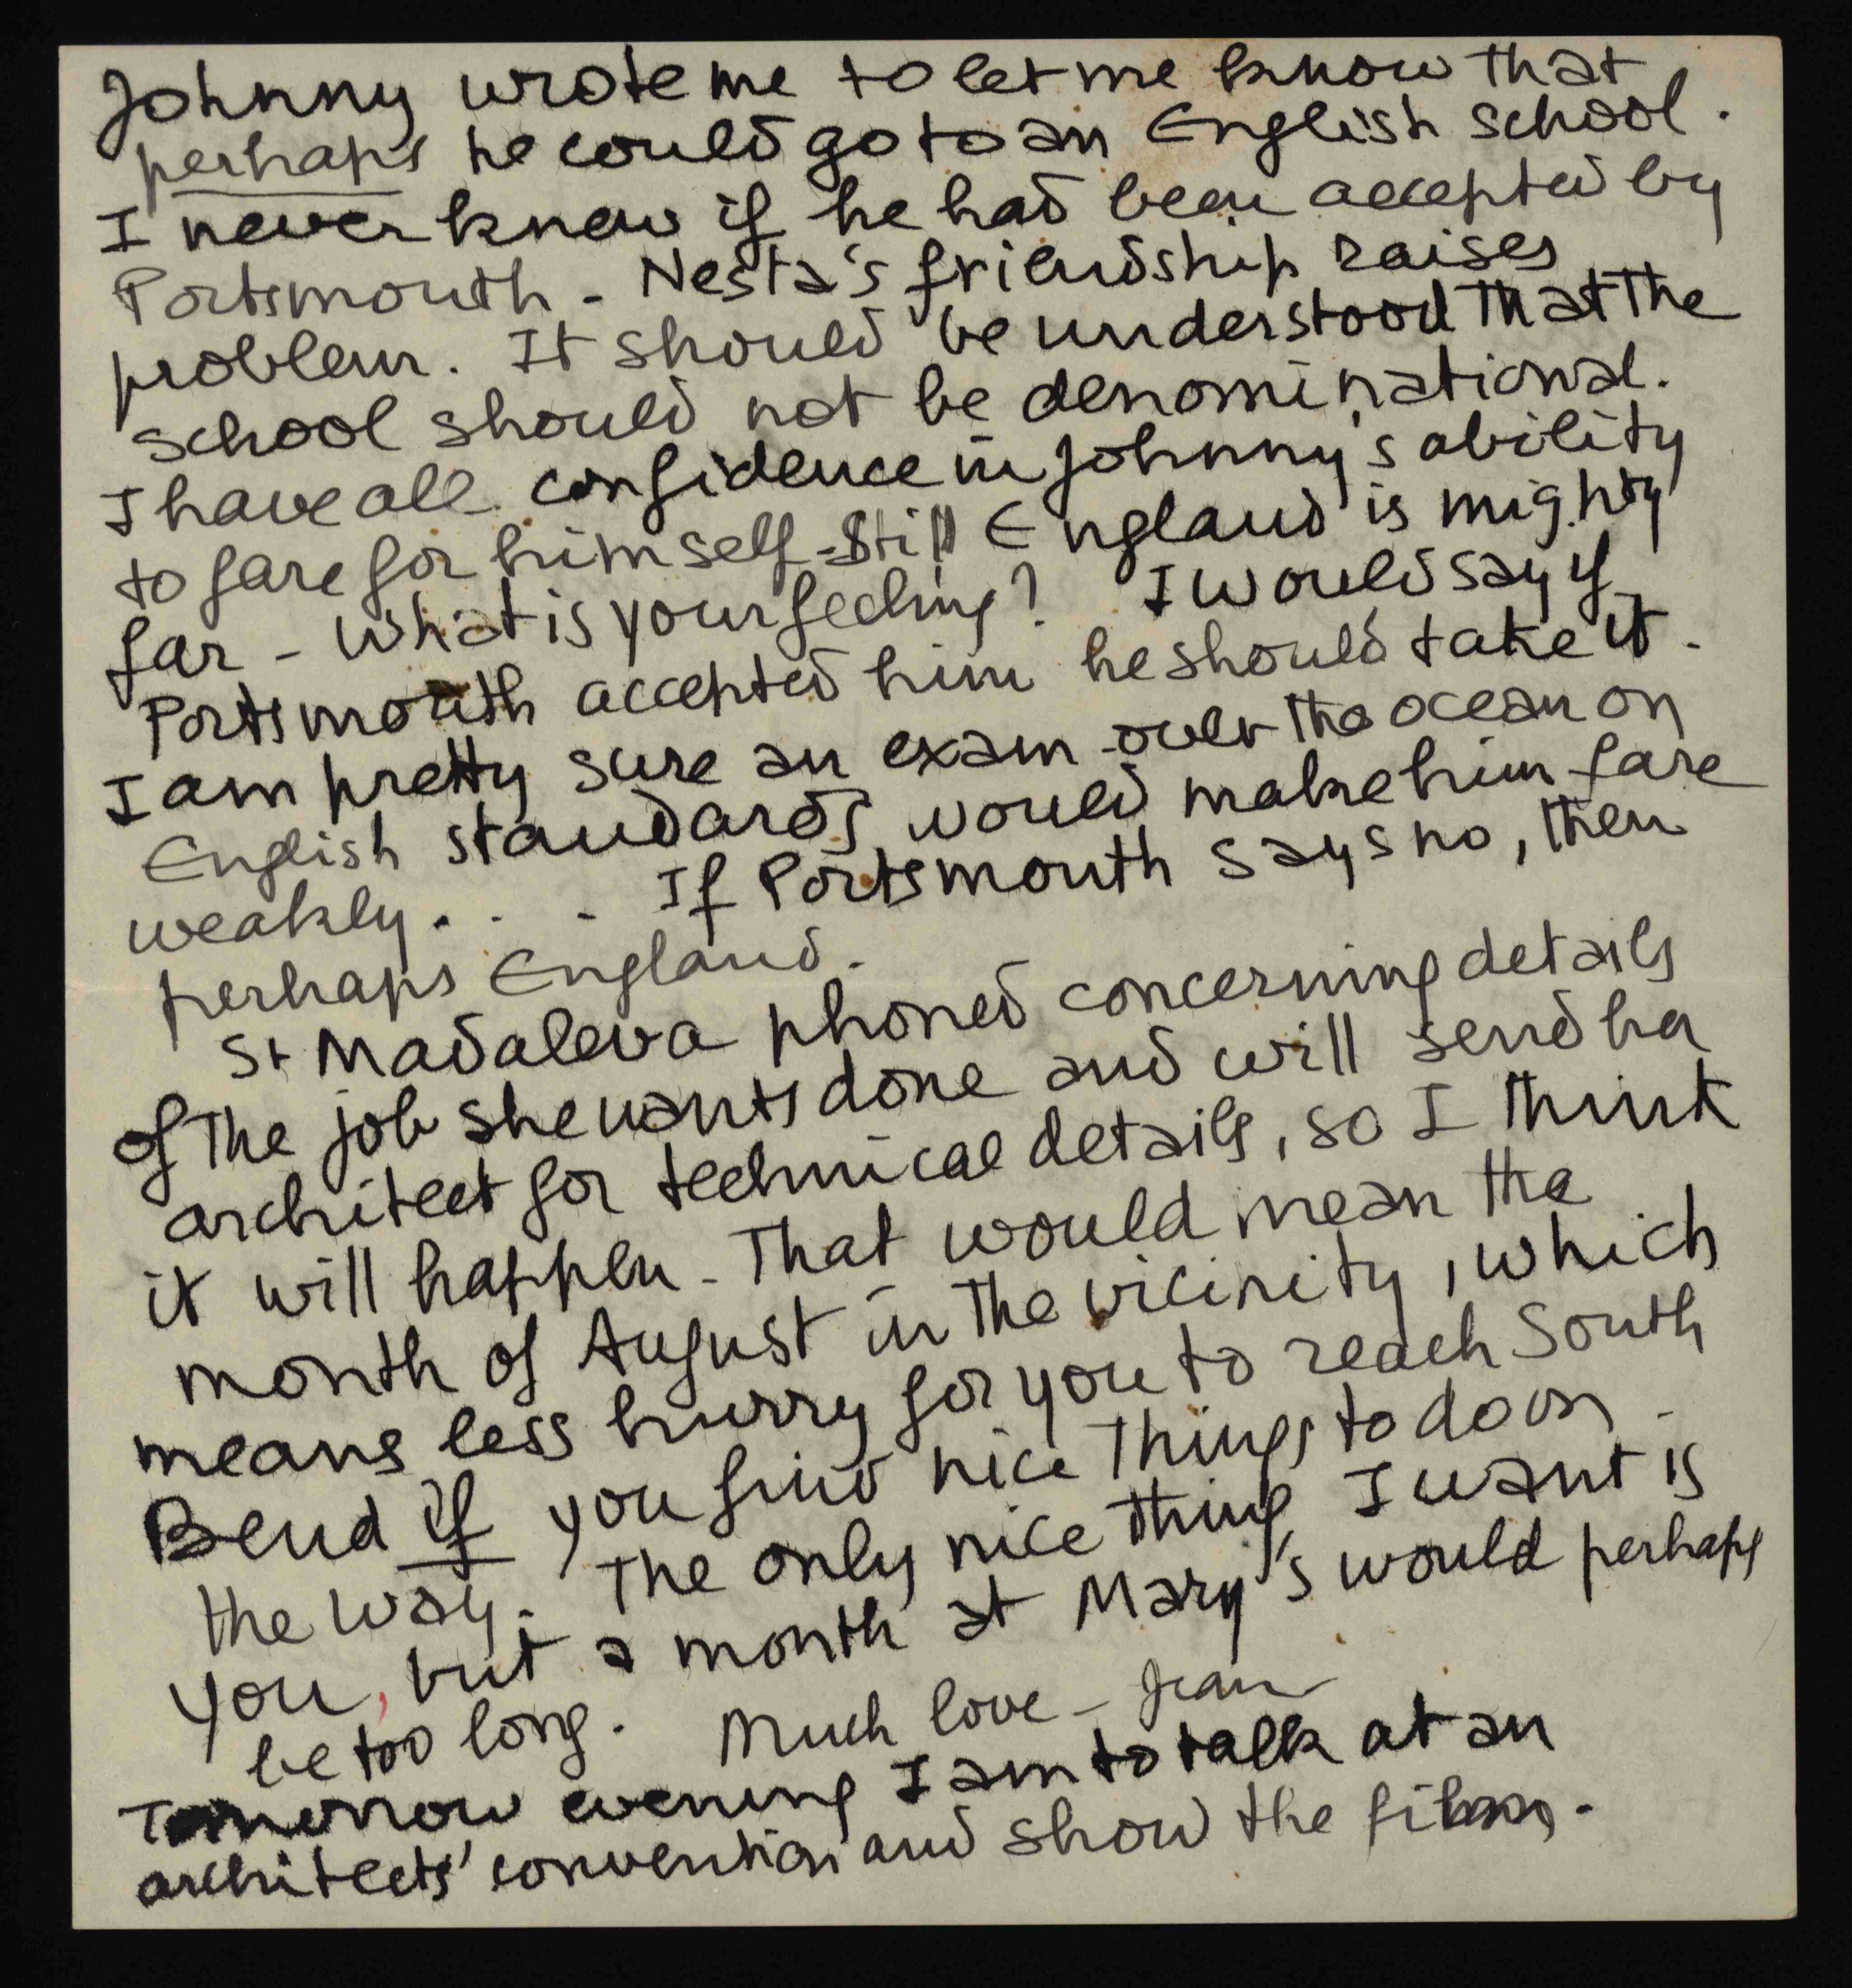 Johnny wrote me to let me know that
perhaps he could go to an English school.
I never knew if he had been accepted by
Portsmouth - Nesta's friendship raises
problem. It should be understood that the
school should not be denominational.
I have all confidence in Johnny's ability
to fare for himself - still England is mighty
far - What is your feeling? I would say if
Portsmouth accepted him he should take it.
I am pretty sure an exam over the ocean on
English standards would make him fare
weakly . . . If Portsmouth says no, then
perhaps England.
St Madaleva phoned concerning details
of the job she wants done and will send her
architect for technical details, so I think
it will happen - That would mean the
month of August in the vicinity, which
means less hurry for you to reach South
Bend if you find nice things to do on
the way. The only nice thing I want is
you, but a month at Mary's would perhaps
be too long. Much love - Jean
Tomorrow evening I am to talk at an
architects' convention and show the films.